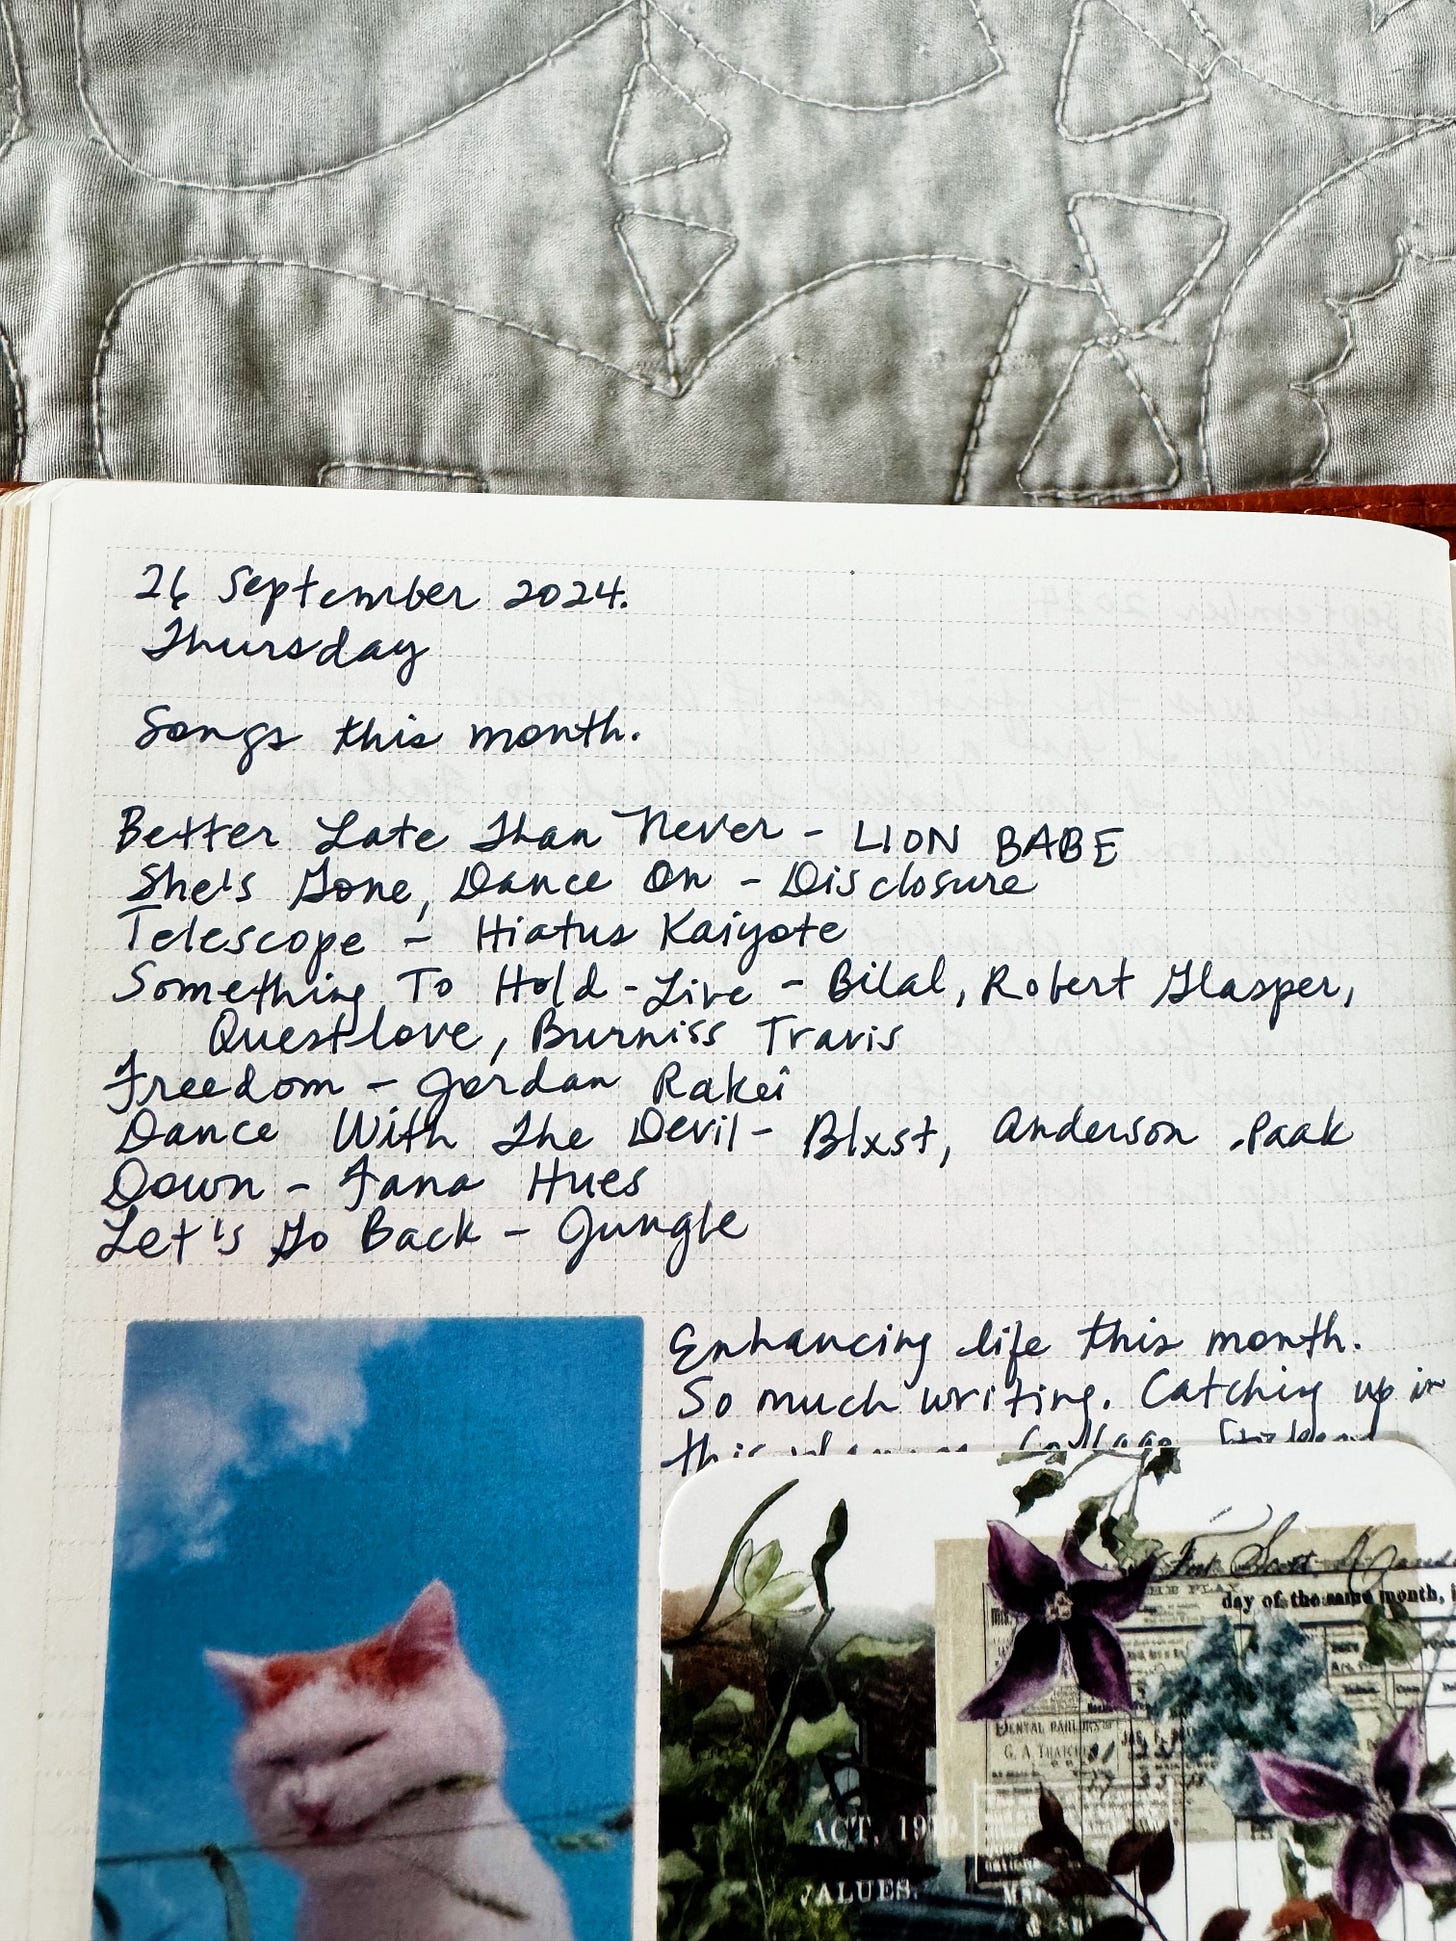 26 September 2024.
Thursday
Songs this month.
Better Late Than Never - LION BABE
She's Gone, Dance On - Disclosure
Telescope - Hiatus Kaiyote
Something To Hold - Live - Bilal, Robert Glasper,
Questlove, Burniss Travis
Freedom - Jordan Rakei
Dance With The Devil - Blxst, Anderson .Paak
Down - Fana Hues
Let's Go Back - Jungle
Enhancing life this month.
So much writing. Catching up in
this
day of the same month,
DENTAL PARLORS
G. A. THATCHER
ACT, 19
VALUES.